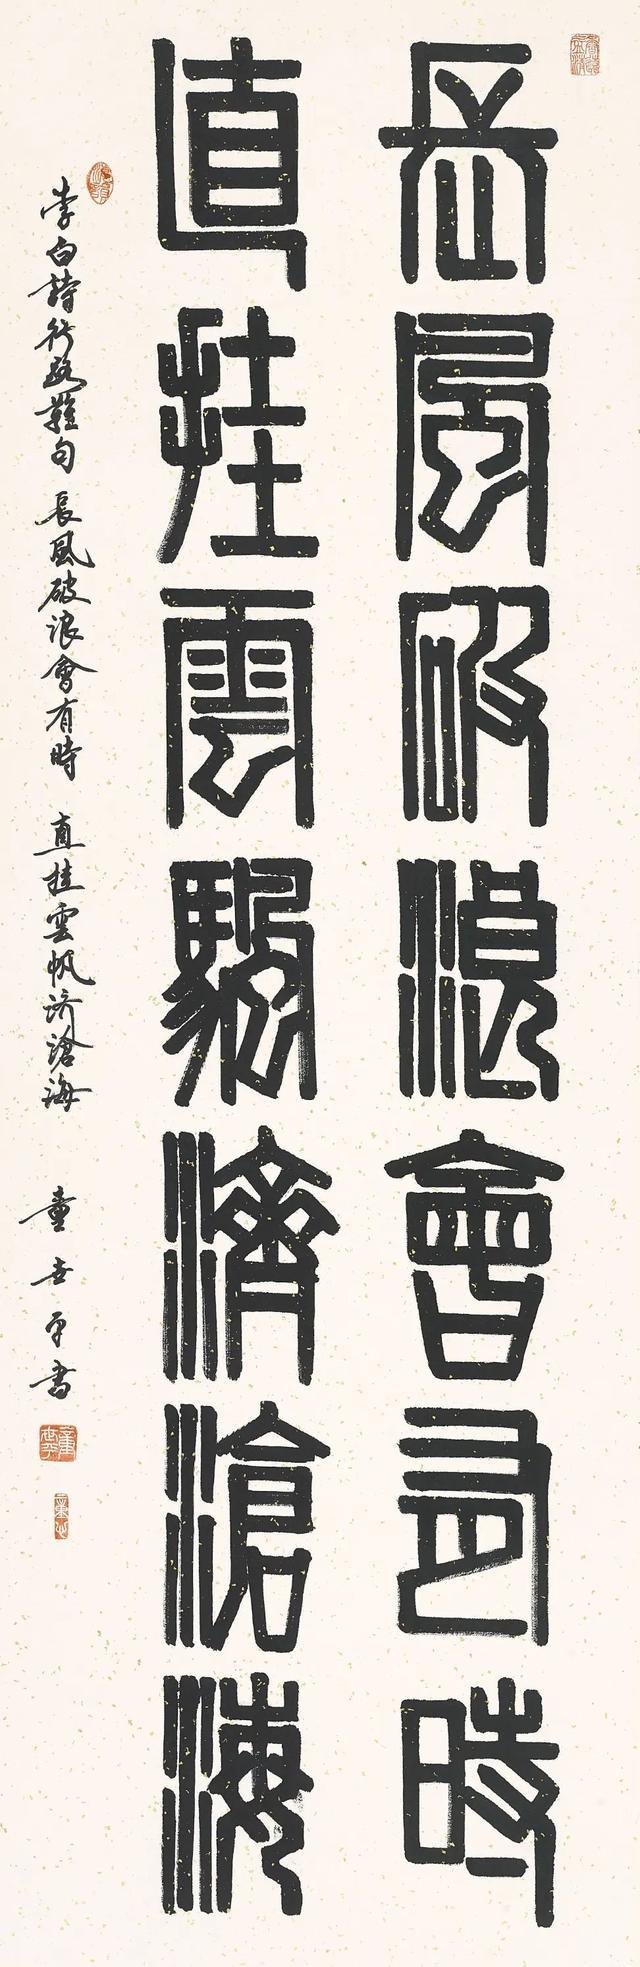 長風破浪會有時
直挂雲颿濟滄海
李白詩行路難句 長風破浪會有時 直挂雲帆济滄海 童世平書